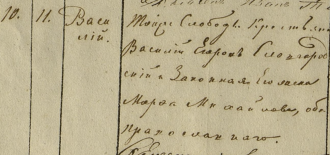 10. 11. Васи
лій.
Тойже Слобод. Крестьян
Василій Егоров
скій и Законная Его жена
Марѳа Михайлова, оба
православнаго.